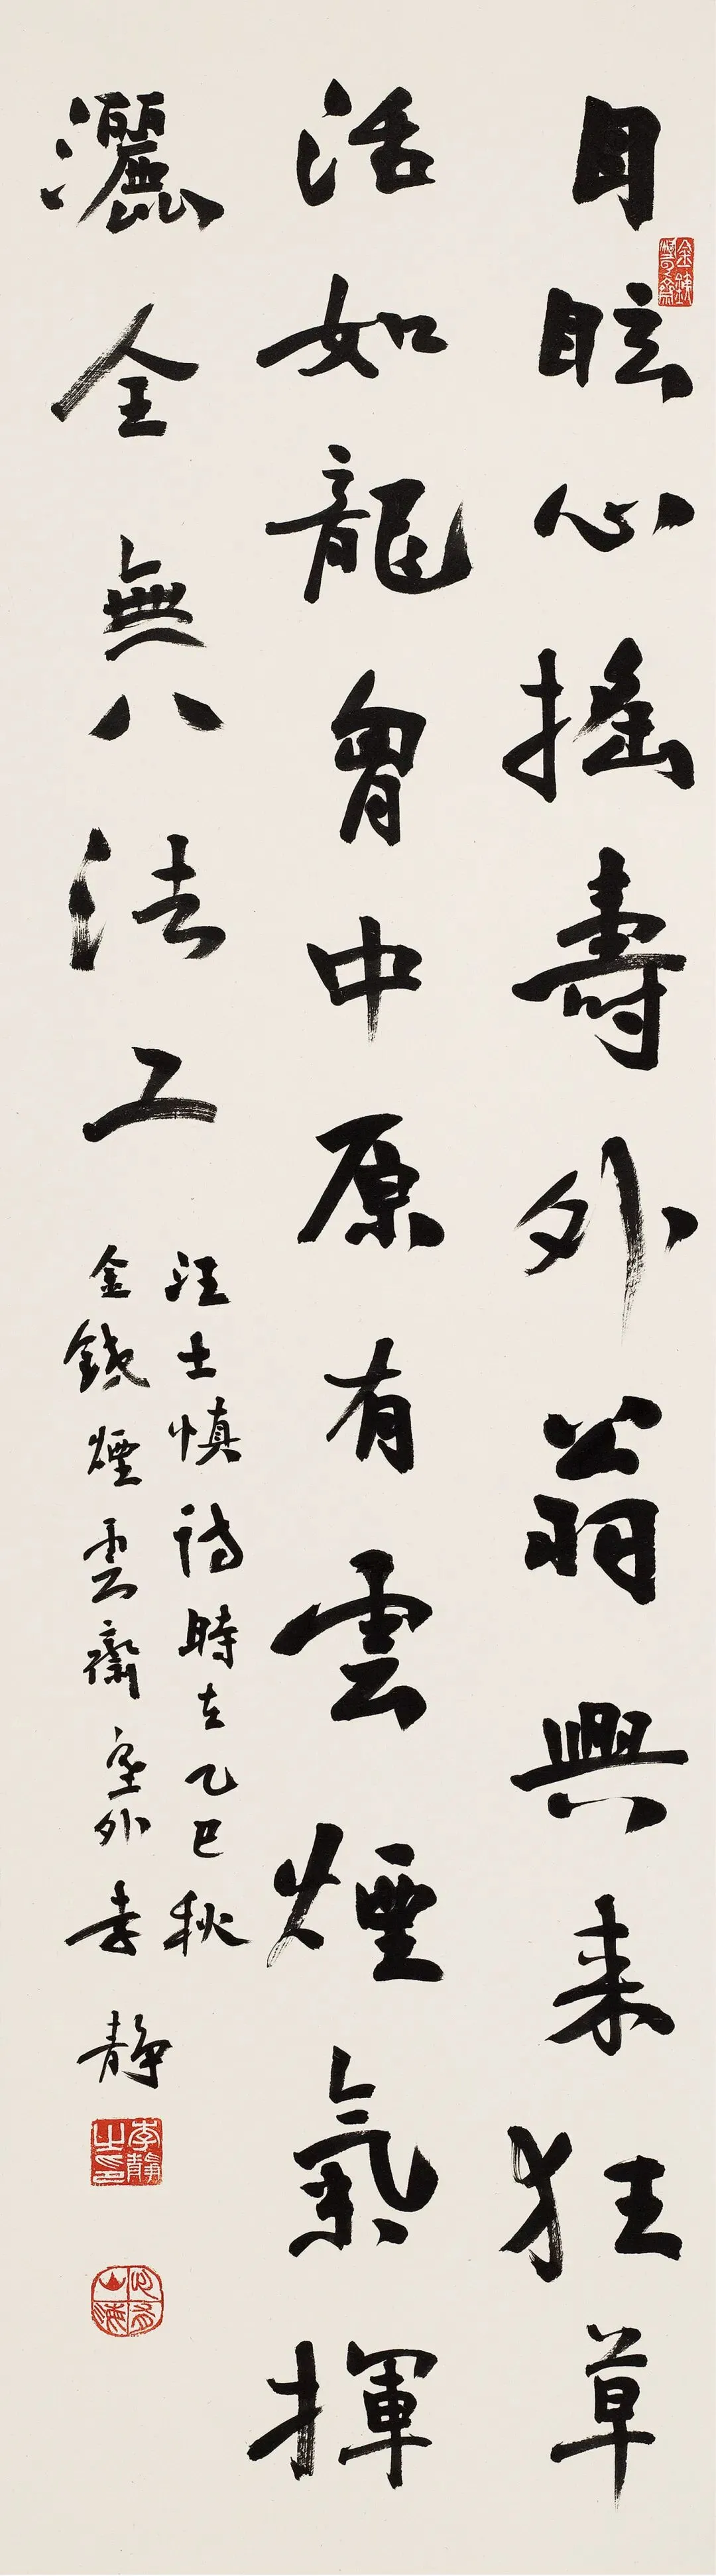 目眩心搖壽外翁興来狂草
活如龍胷中原有雲煙氣揮
灑全無八法工
汪士慎詩時在乙巳秋
金錢煙雲齋室外李靜
李靜之印